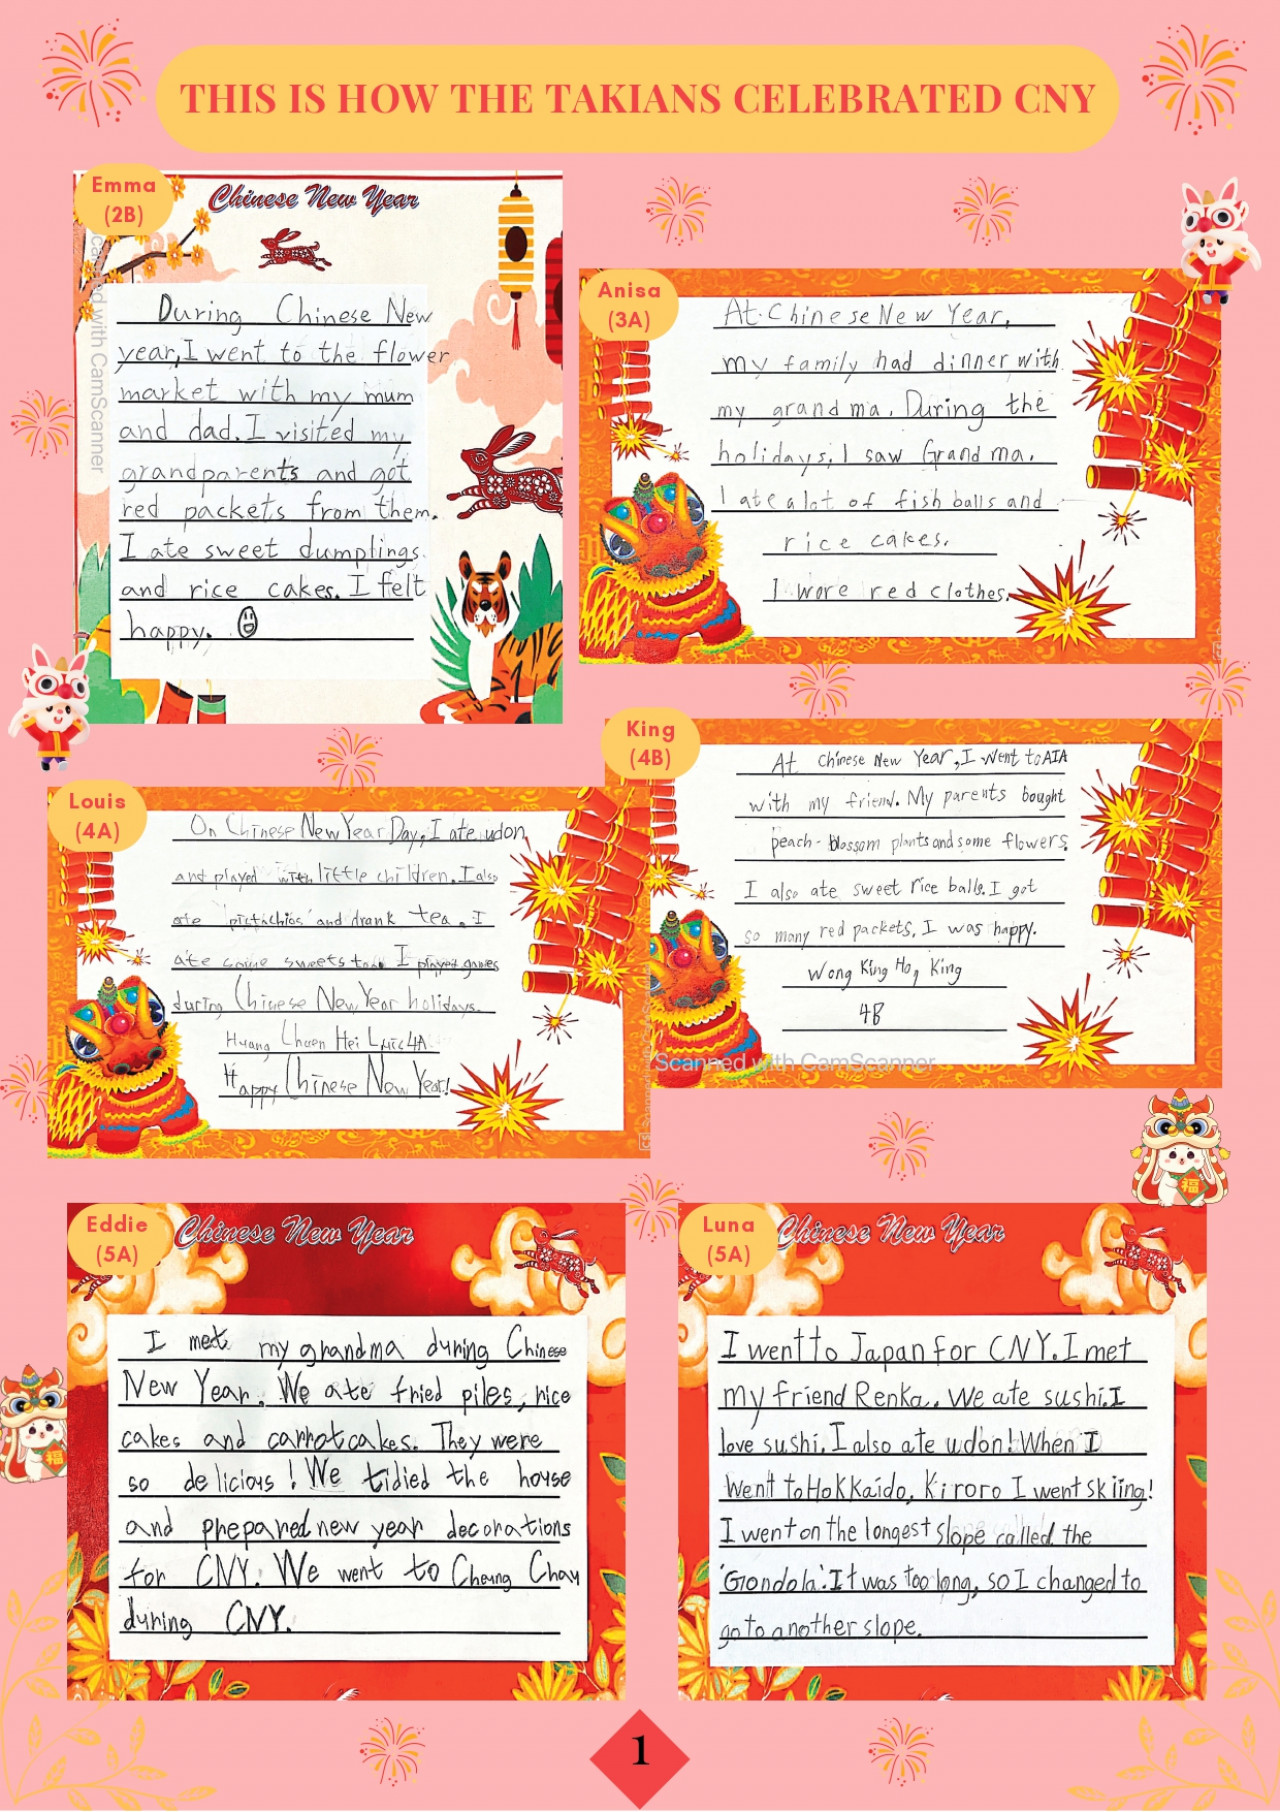 THIS IS HOW THE TAKIANS CELEBRATED CNY
Emma
(2B)
Chinese New Year
During Chinese New
year, I went to the flower
market with my mum
and dad. I visited my
grandparents and got
red packets from them.
I ate sweet dumplings
and rice cakes. I felt
happy.
Anisa
(3A)
At Chinese New Year,
my family had dinner with
my grandma. During the
holidays, I saw Grandma.
I ate a lot of fish balls and
rice cakes.
I wore red clothes.
Louis
(4A)
On Chinese New Year Day, I ate udon
and played with little children. I also
ate pistachios and drank tea. I
ate some sweets too. I played games
during Chinese New Year holidays.
Huang Chuen Hei 4A
Happy Chinese New Year!
King
(4B)
At Chinese New Year, I went to AIA
with my friend. My parents bought
peach-blossom plants and some flowers.
I also ate sweet rice balls. I got
so many red packets. I was happy.
Wong King Ho, King
4B
Scanned with CamScanner
Eddie
(5A)
Chinese New Year
I met my grandma during Chinese
New Year. We ate fried piles, rice
cakes and carrot cakes. They were
so delicious! We tidied the house
and prepared new year decorations
for CNY. We went to Cheung Chau
during CNY.
Luna
(5A)
Chinese New Year
I went to Japan for CNY. I met
my friend Renka. We ate sushi. I
love sushi. I also ate udon! When I
went to Hokkaido, Kiroro I went skiing!
I went on the longest slope called the
'Gondola'. It was too long, so I changed to
go to another slope.
福
福
1